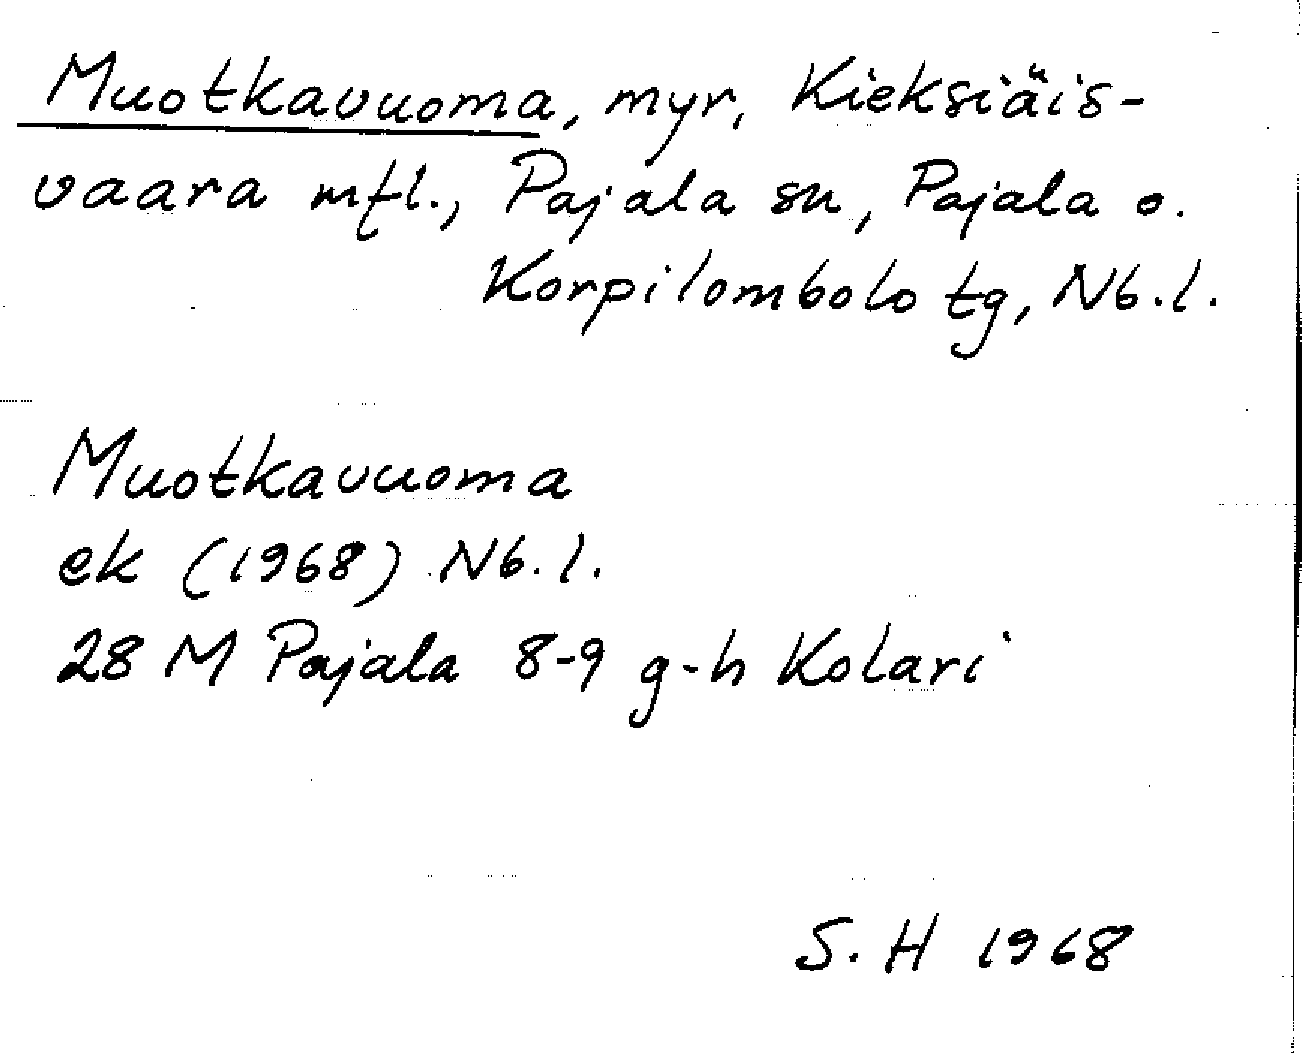 Muotkavuoma, myr, Kieksiäis-
vaara mfl., Pajala sn, Pajala o.
Korpilombolo tg, Nb.l.
Muotkavuoma
ek (1968) Nb.l.
28 M Pajala 8-9 g-h Kolari
S.H 1968